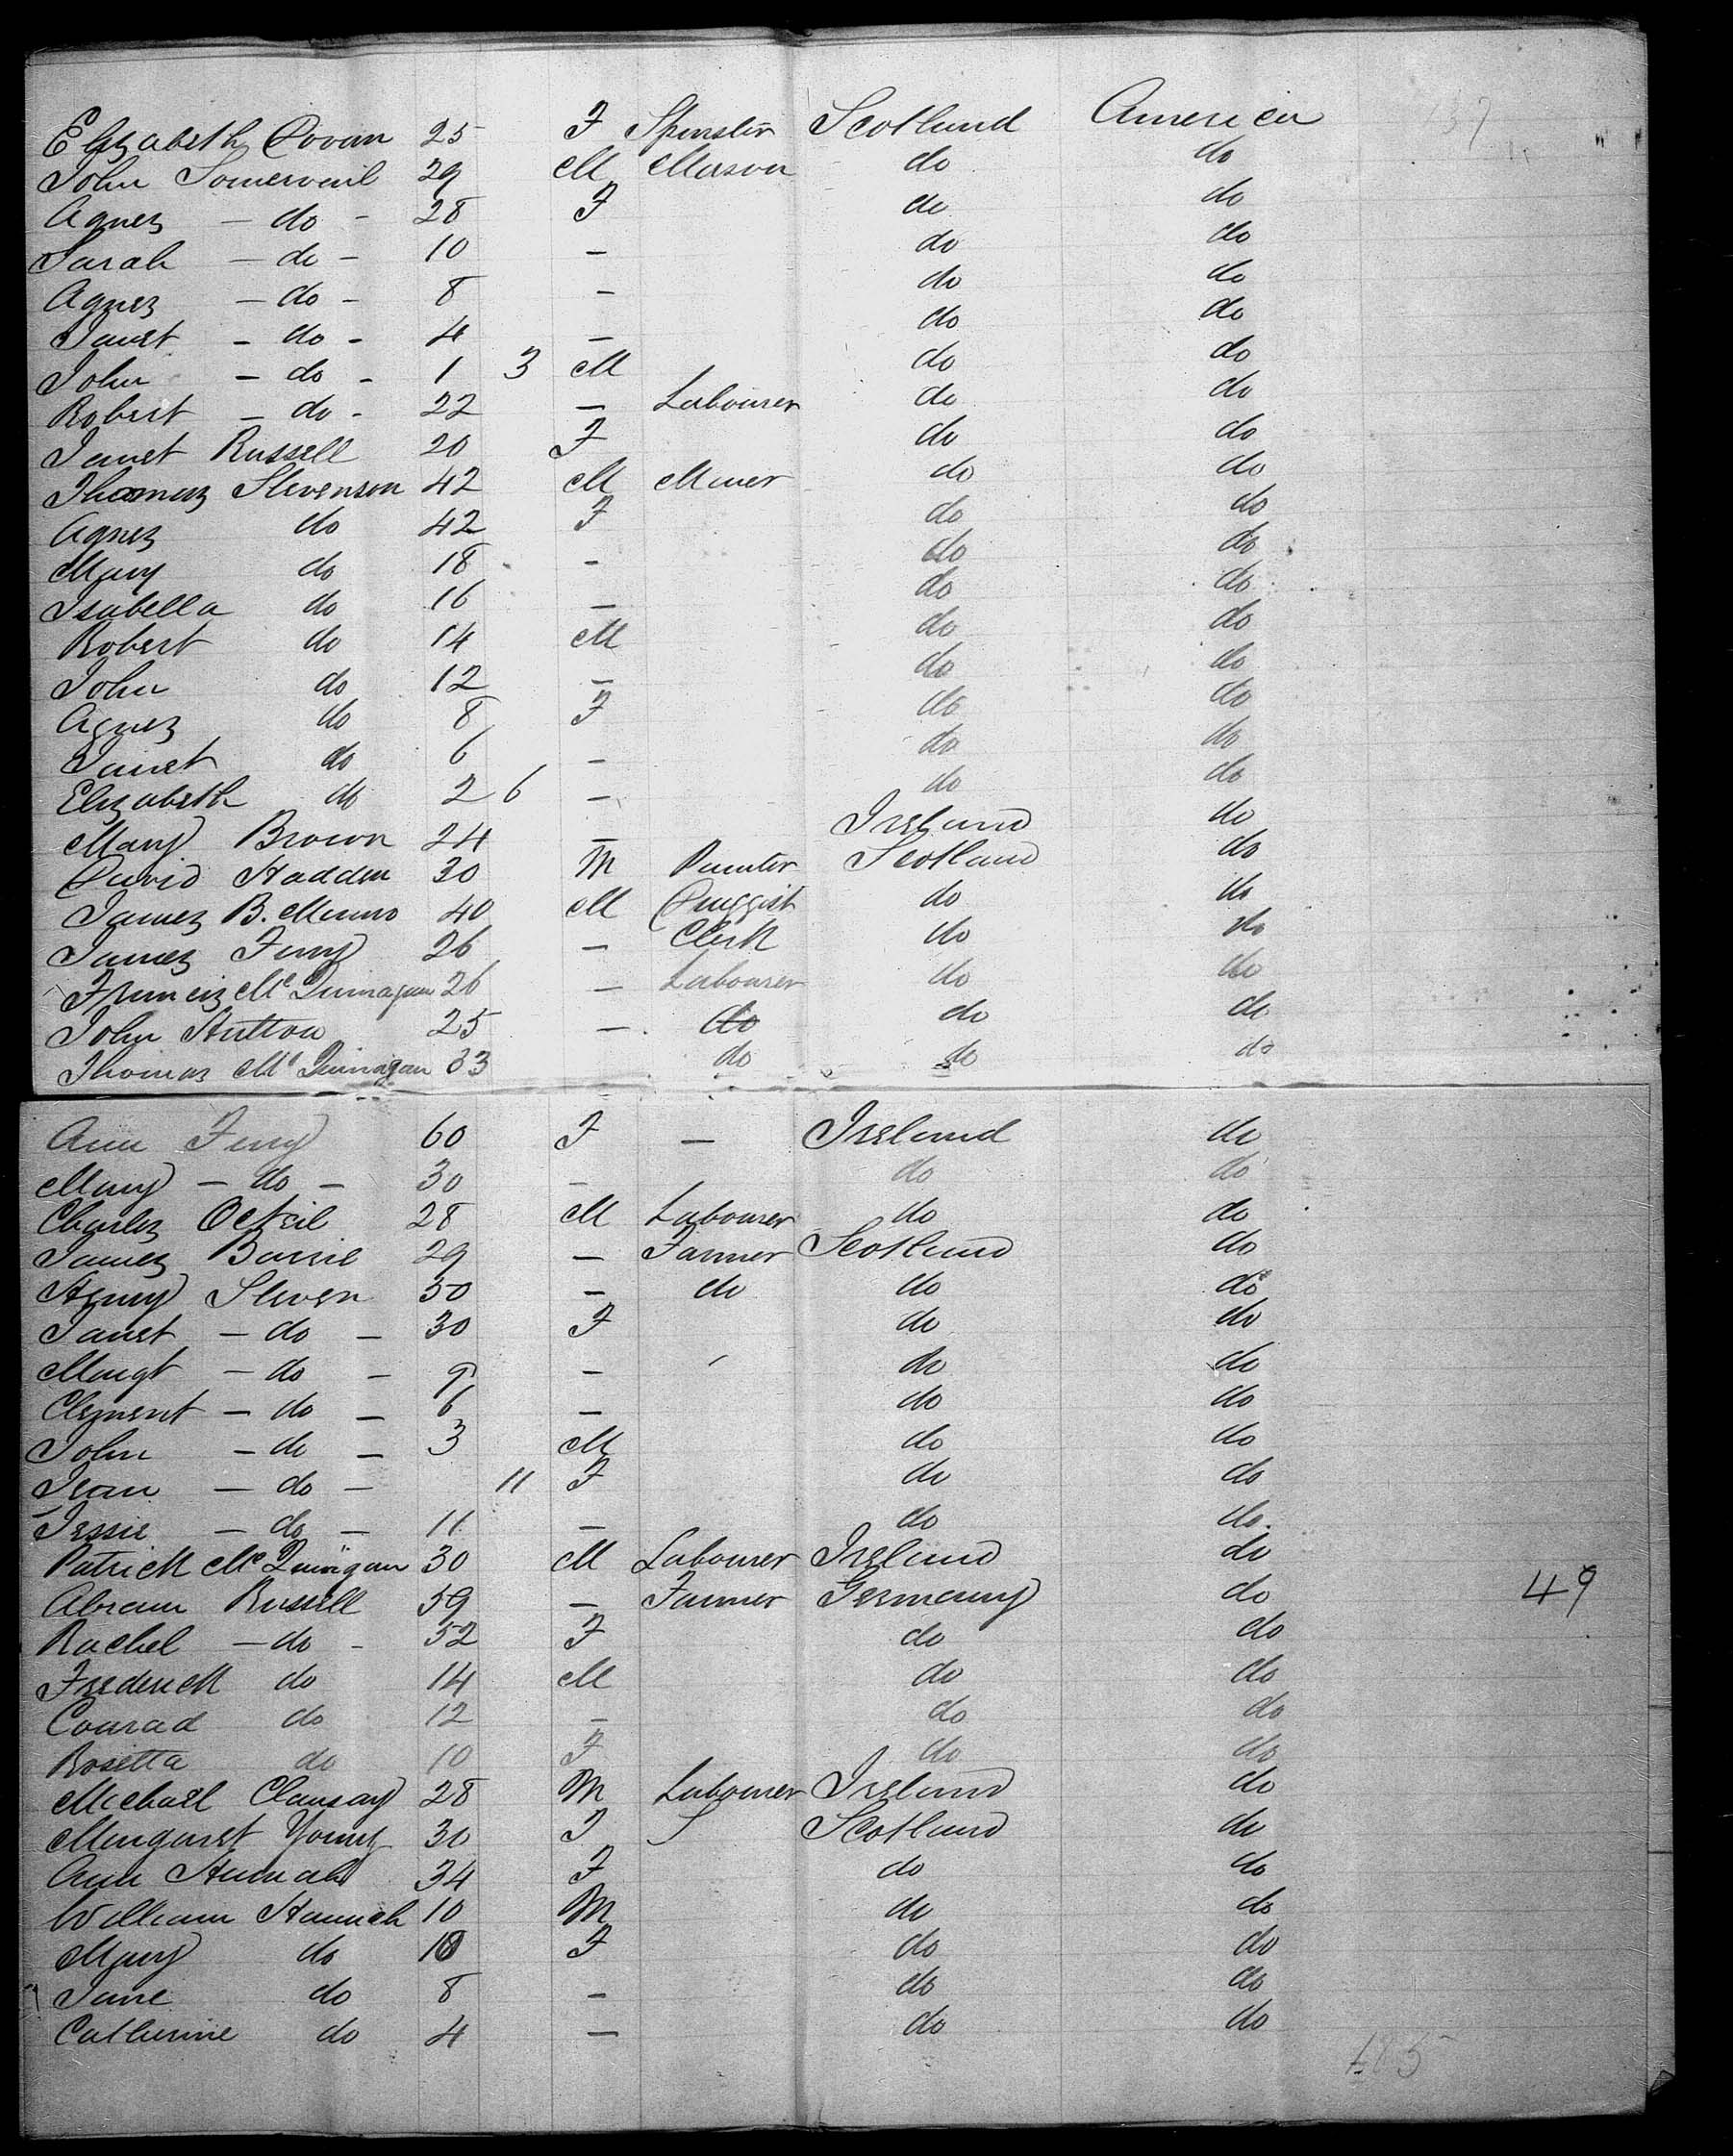 137
Elizabeth Covan 25 F Spinster Scotland America
John Somervail 29 M Mason do do
Agnes - do - 28 F do do
Sarah - do - 10 - do do
Agnes - do - 8 - do do
Janet - do - 4 - do do
John - do - 1 3 M do do
Robert - do - 22 - Labourer do do
Janet Russell 20 F do do
Thomas Stevenson 42 M Miner do do
Agnes do 42 F do do
Mary do 18 - do do
Isabella do 16 - do do
Robert do 14 M do do
John do 12 - do do
Agnes do 8 F do do
Janet do 6 - do do
Elizabeth do 2 6 - do do
Mary Brown 24 - Ireland do
David Hadden 30 M Painter Scotland do
James B. Munro 40 M Druggist do do
James Ferry 26 - Clerk do do
Francis Mc Quinagan 26 - Labourer do do
John Hutton 25 - do do do
Thomas Mc Quinagan 33 do do do
Ann Ferry 60 F - Ireland do
Mary - do - 30 - do do
Charles ONeil 28 M Labourer do do
James Barrie 29 - Farmer Scotland do
Henry Steven 30 - do do do
Janet - do - 30 F do do
Margt - do - 9 - do do
Clement - do - 6 - do do
John - do - 3 M do do
Jean - do - 11 F do do
Jessie - do - 11 - do do
Patrick Mc Quinigan 30 M Labourer Ireland do
Abram Russell 59 - Farmer Germany do 49
Rachel - do - 52 F do do
Frederick do 14 M do do
Conrad do 12 - do do
Rosetta do 10 F do do
Michael 28 M Labourer Ireland do
Margaret Young 30 F S Scotland do
Ann Hannah 34 F do do
William Hannah 10 M do do
Mary do 10 F do do
Jane do 8 - do do
Catherine do 4 - do do